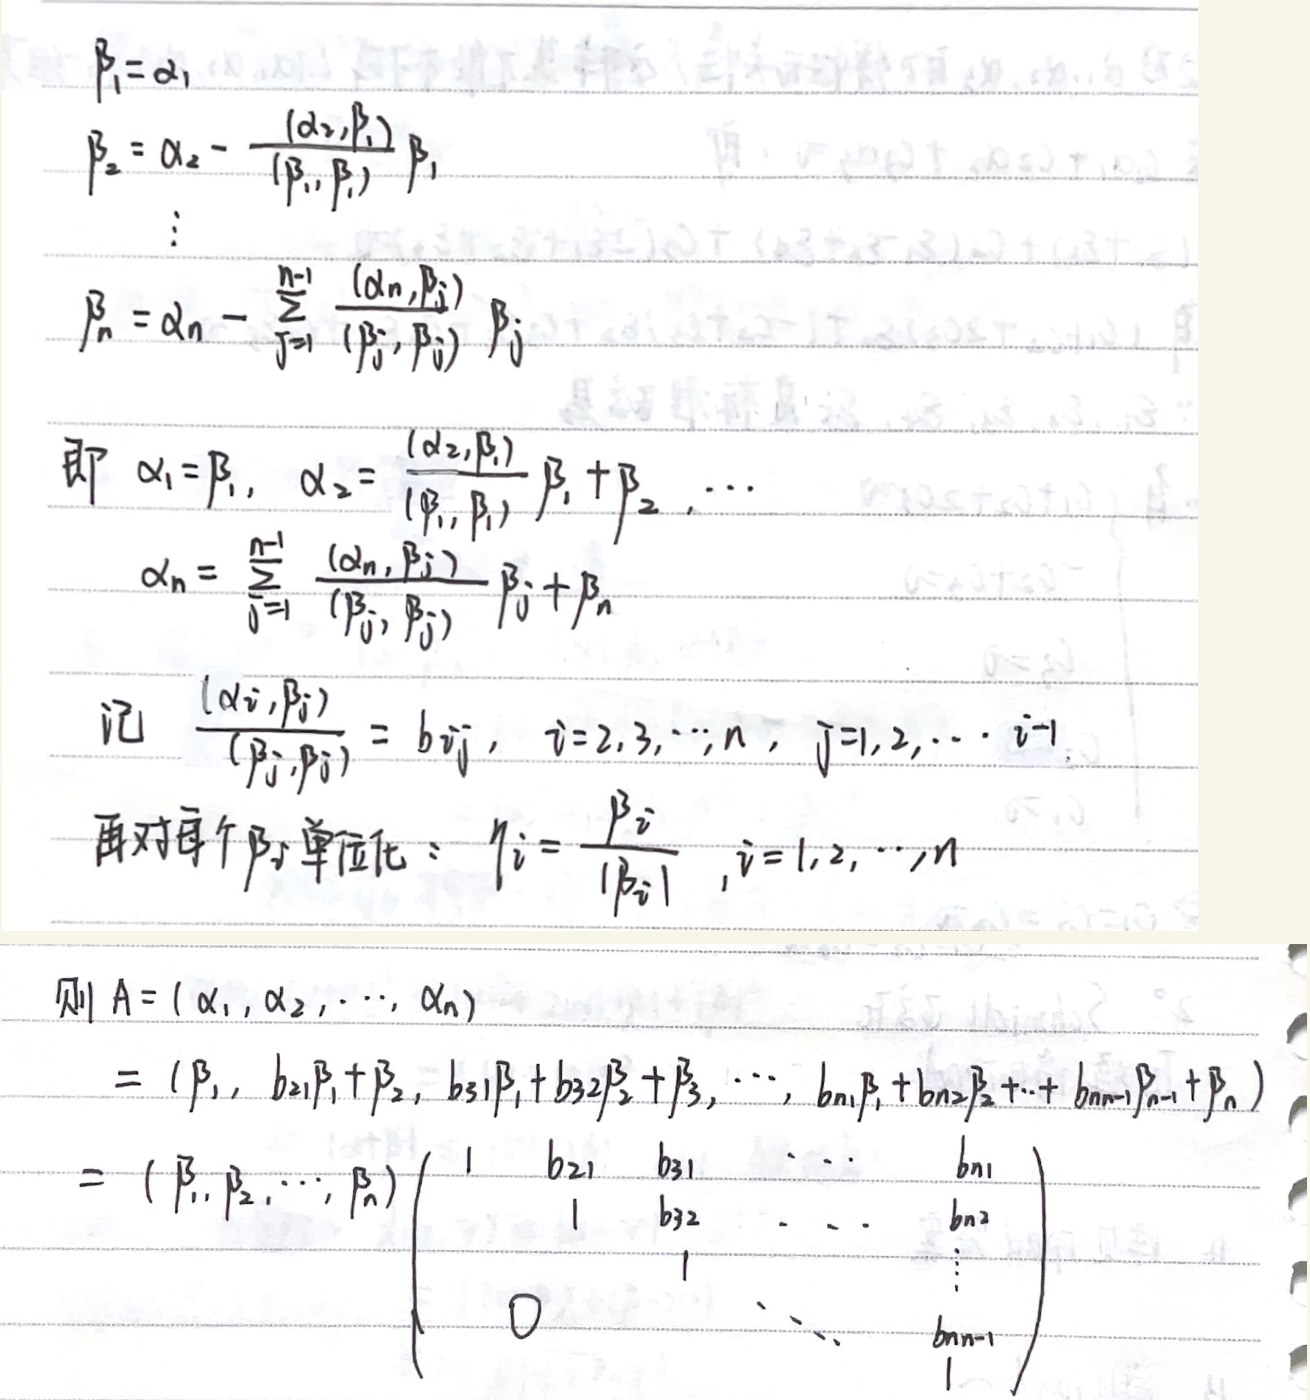 β₁=α₁
β₂ = α₂ - (α₂,β₁)/(β₁,β₁) β₁
⋮
βₙ = αₙ - Σ_{j=1}^{n-1} (αₙ,βⱼ)/(βⱼ,βⱼ) βⱼ
即 α₁=β₁, α₂ = (α₂,β₁)/(β₁,β₁) β₁+β₂, ⋯
αₙ = Σ_{j=1}^{n-1} (αₙ,βⱼ)/(βⱼ,βⱼ) βⱼ+βₙ
记 (αi,βj)/(βj,βj) = bij, i=2,3,⋯,n, j=1,2,⋯ i-1.
再对每个βi单位化: ηi = βi/|βi|, i=1,2,⋯,n
则 A=(α₁, α₂, ⋯, αₙ)
= (β₁, b21β₁+β₂, b31β₁+b32β₂+β₃, ⋯, bn1β₁+bn2β₂+⋯+bnn-1βn-1+βn)
= (β₁, β₂, ⋯, βₙ) ( 1 b21 b31 ⋯ bn1
1 b32 ⋯ bn2
1 ⋮
0 ⋱ bnn-1
1 )